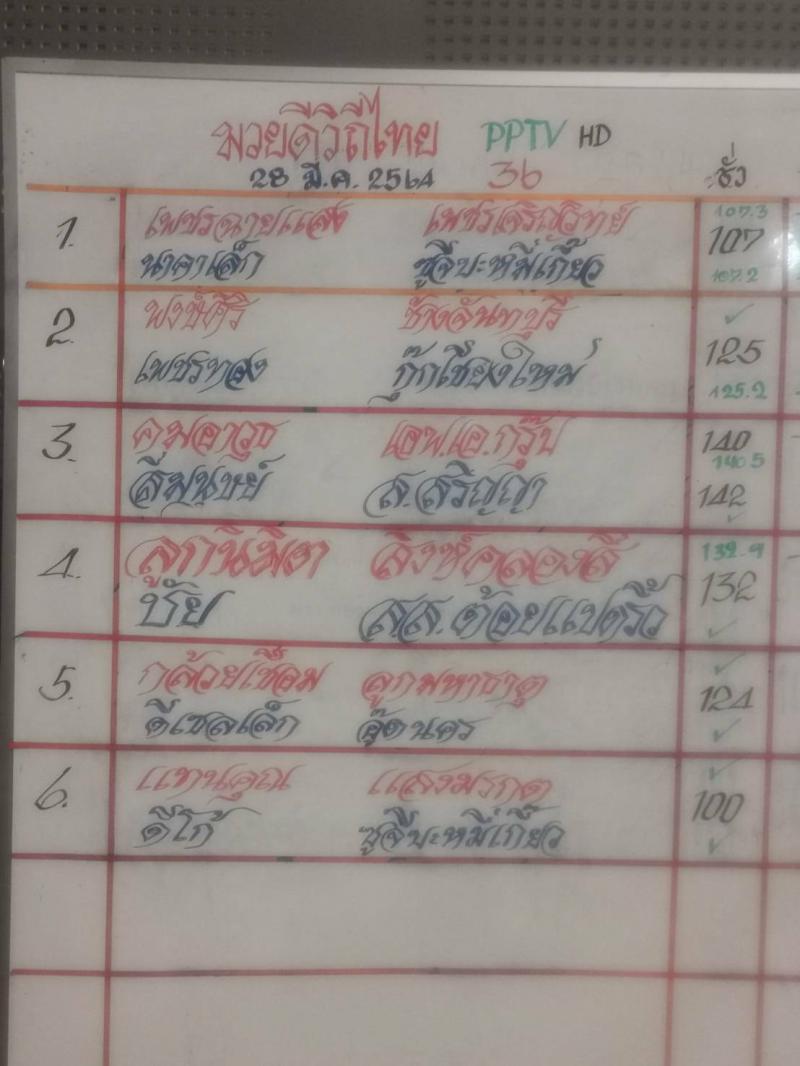 มวยดีวิถีไทย PPTV HD
28 มี.ค. 2564 36 ชั่ง
1. เพชรฉายแสง เพชรเจริญวิทย์ 107.3
นาคาเล็ก ซูจีบะหมี่เกี๊ยว 107
107.2
2. พงษ์ศิริ ช้างจันทบุรี ✓
เพชรทอง กุ๊กเชียงใหม่ 125
125.2
3. คมอาวุธ เอฟ.เอ.กรุ๊ป 140
140.5
สีมนุษย์ ส.สริญญา 142
✓
4. ลูกนิมิต สิงห์คลองสี่ 132.9
ชัย ส.ส.ต้อยแปดริ้ว 132
✓
5. กล้วยเชื่อม ลูกมหาธาตุ ✓
ดีเซลเล็ก อู๊ดนคร 124
✓
6. แทนคุณ แสงมรกต ✓
ดีโก้ ซูจีบะหมี่เกี๊ยว 100
✓